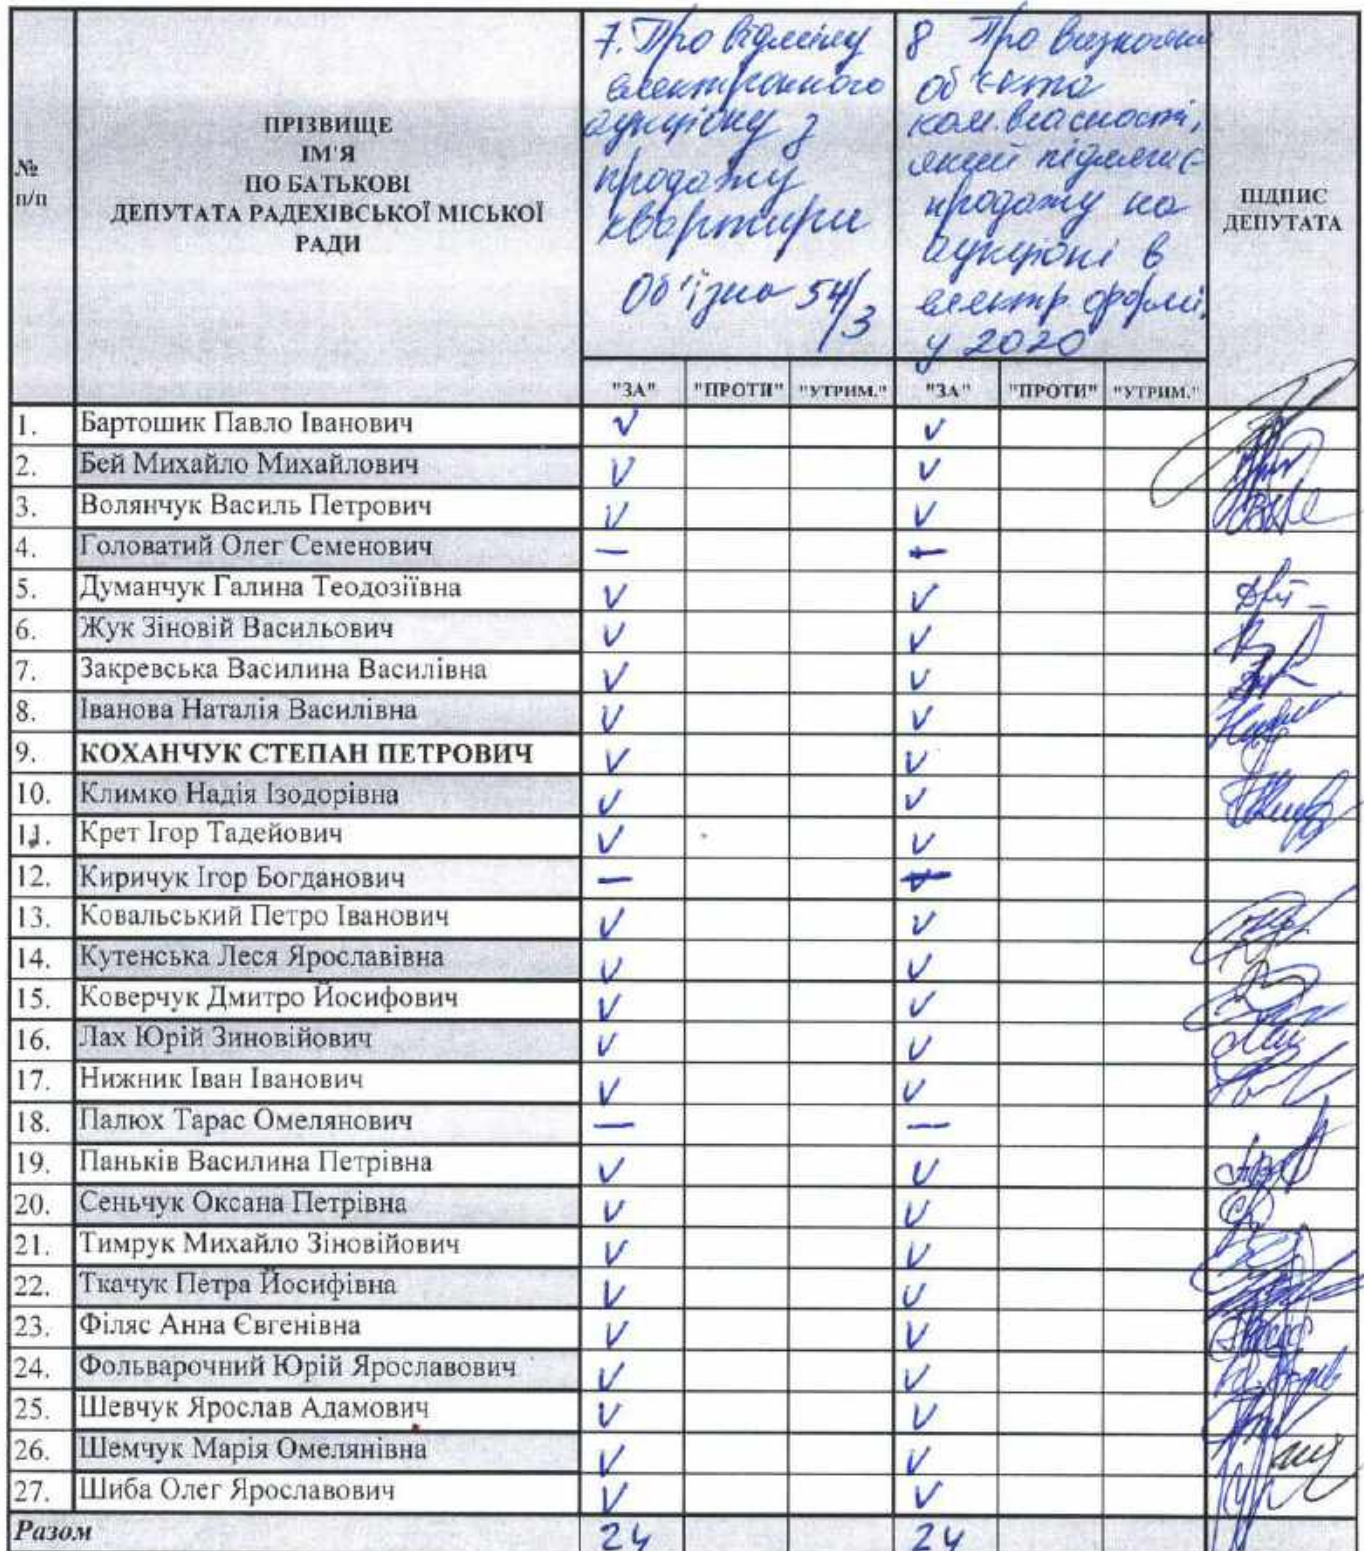 №
п/п
ПРІЗВИЩЕ
ІМ'Я
ПО БАТЬКОВІ
ДЕПУТАТА РАДЕХІВСЬКОЇ МІСЬКОЇ
РАДИ
7. Про відміну
електронного
аукціону з
продажу
квартири
Об'їзна 54/3
8 Про визначення
об'єкта
ком. власності,
який підлягає
продажу на
аукціоні в
електр. формі,
у 2020
ПІДПИС
ДЕПУТАТА
"ЗА" "ПРОТИ" "УТРИМ." "ЗА" "ПРОТИ" "УТРИМ."
1. Бартошик Павло Іванович V V
2. Бей Михайло Михайлович V V
3. Волянчук Василь Петрович V V
4. Головатий Олег Семенович — —
5. Думанчук Галина Теодозіївна V V
6. Жук Зіновій Васильович V V
7. Закревська Василина Василівна V V
8. Іванова Наталія Василівна V V
9. КОХАНЧУК СТЕПАН ПЕТРОВИЧ V V
10. Климко Надія Ізодорівна V V
11. Крет Ігор Тадейович V V
12. Киричук Ігор Богданович — —
13. Ковальський Петро Іванович V V
14. Кутенська Леся Ярославівна V V
15. Коверчук Дмитро Йосифович V V
16. Лах Юрій Зиновійович V V
17. Нижник Іван Іванович V V
18. Палюх Тарас Омелянович — —
19. Паньків Василина Петрівна V V
20. Сеньчук Оксана Петрівна V V
21. Тимрук Михайло Зіновійович V V
22. Ткачук Петра Йосифівна V V
23. Філяс Анна Євгенівна V V
24. Фольварочний Юрій Ярославович V V
25. Шевчук Ярослав Адамович V V
26. Шемчук Марія Омелянівна V V
27. Шиба Олег Ярославович V V
Разом 24 24